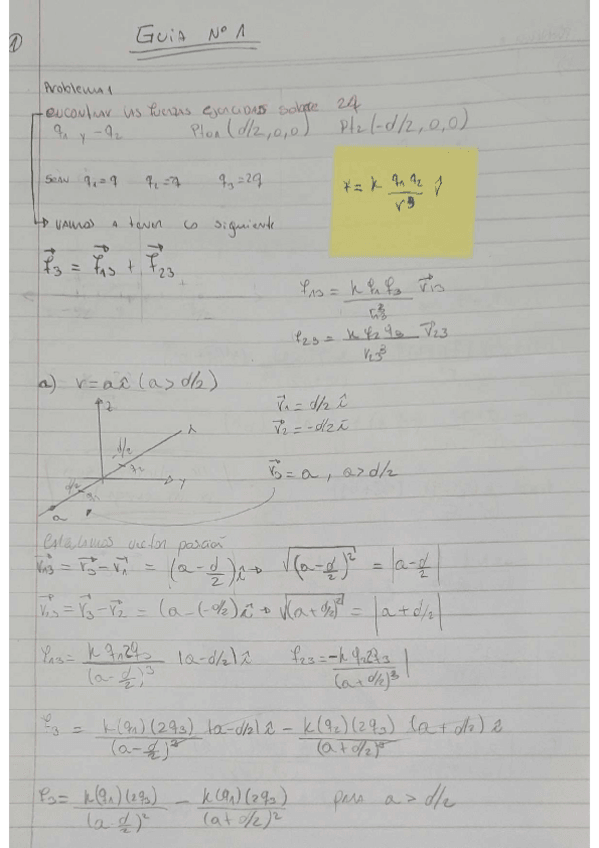 1)
GUIA Nº 1
Problema 1
encontrar las fuerzas ejercidas sobre 2q
q₁ y -q₂ (d/2, 0, 0) (-d/2, 0, 0)
sean q₁=q q₃=2q
F = k q₁ q₂ / r³
VAMOS A tener lo siguiente
F⃗₃ = F⃗₁₃ + F⃗₂₃
F₁₃ = k q₁ q₃ / r₁₃³ r⃗₁₃
F₂₃ = k q₂ q₃ / r₂₃³ r⃗₂₃
a) r = a î (a > d/2)
r⃗₁ = d/2 î
r⃗₂ = -d/2 î
r⃗₃ = a, a > d/2
z
x
d/2
q₂
y
d/2
q₁
a
vector posición
r⃗₁₃ = r⃗₃ - r⃗₁ = (a - d/2) î → √(a - d/2)² = |a - d/2|
r⃗₁₃ = r⃗₃ - r⃗₂ = (a - (-d/2) î → √(a + d/2)² = |a + d/2|
F₁₃ = k q₁ 2q₃ / (a - d/2)³ (a - d/2) î F₂₃ = -k q₂ 2q₃ / (a + d/2)³
F₃ = k(q₁)(2q₃) / (a - d/2)³ (a - d/2) î - k(q₂)(2q₃) / (a + d/2)³ (a + d/2) î
F₃ = k(q₁)(2q₃) / (a d/2)² - k(q₁)(2q₃) / (a + d/2)² para a > d/2